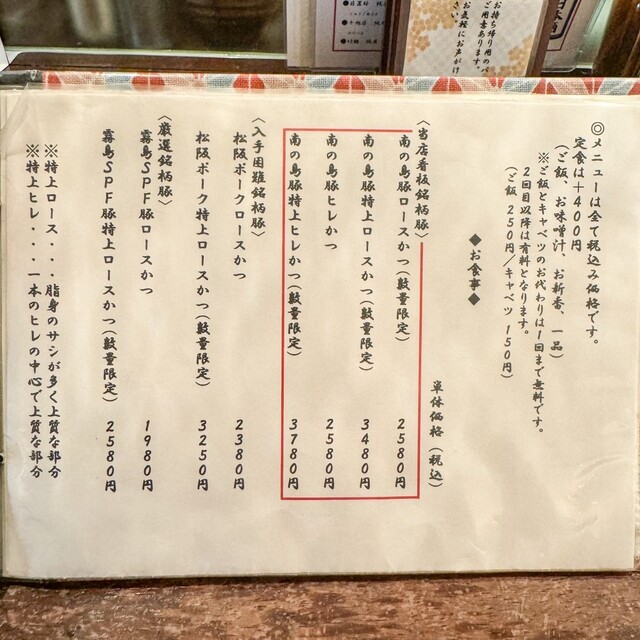 ◎メニューは全て税込み価格です。
定食は＋400円
(ご飯、お味噌汁、お新番、一品)
※ご飯とキャベツのお代わりは1回まで無料です。
2回目以降は有料となります。
(ご飯 250円/キャベツ 150円)
◆お食事◆
単体価格(税込)
〈当店看板銘柄豚〉
南の島豚ロースかつ(数量限定) 2580円
南の島豚特上ロースかつ(数量限定) 3480円
南の島豚ヒレかつ 2580円
南の島豚特上ヒレかつ(数量限定) 3780円
〈入手困難銘柄豚〉
松阪ポークロースかつ 2380円
松阪ポーク特上ロースかつ(数量限定) 3250円
〈厳選銘柄豚〉
霧島SPF豚ロースかつ 1980円
霧島SPF豚特上ロースかつ(数量限定) 2580円
※特上ロース・・・脂身のサシが多く上質な部分
※特上ヒレ・・・・一本のヒレの中心で上質な部分
お持ち帰り用のパ
ご用意あります。
お気軽にお声がけ
さい。